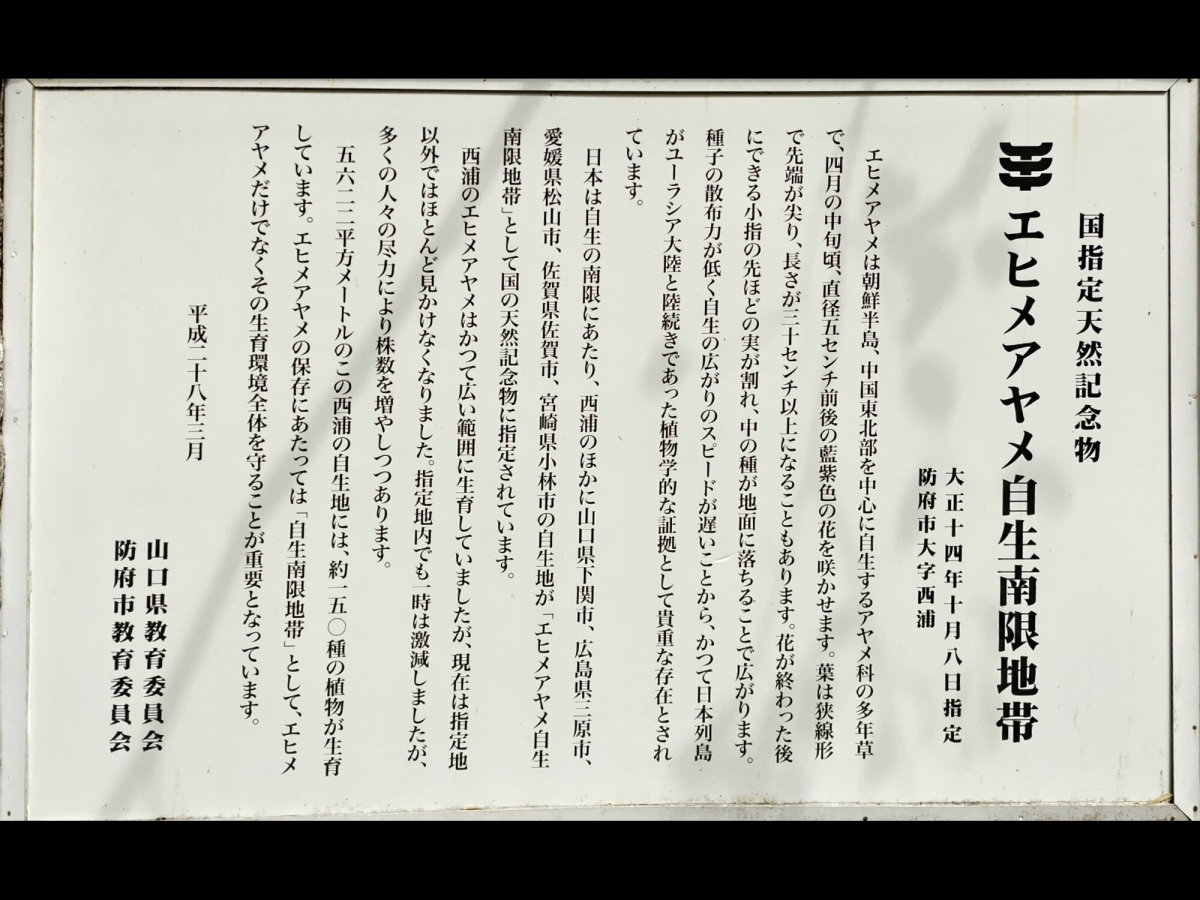 国指定天然記念物
エヒメアヤメ自生南限地帯
大正十四年十月八日指定
防府市大字西浦
エヒメアヤメは朝鮮半島、中国東北部を中心に自生するアヤメ科の多年草
で、四月の中旬頃、直径五センチ前後の藍紫色の花を咲かせます。葉は狭線形
で先端が尖り、長さが三十センチ以上になることもあります。花が終わった後
にできる小指の先ほどの実が割れ、中の種が地面に落ちることで広がります。
種子の散布力が低く自生の広がりのスピードが遅いことから、かつて日本列島
がユーラシア大陸と陸続きであった植物学的な証拠として貴重な存在とされ
ています。
日本は自生の南限にあたり、西浦のほかに山口県下関市、広島県三原市、
愛媛県松山市、佐賀県佐賀市、宮崎県小林市の自生地が「エヒメアヤメ自生
南限地帯」として国の天然記念物に指定されています。
西浦のエヒメアヤメはかつて広い範囲に生育していましたが、現在は指定地
以外ではほとんど見かけなくなりました。指定地内でも一時は激減しましたが、
多くの人々の尽力により株数を増やしつつあります。
五六二二平方メートルのこの西浦の自生地には、約一五〇種の植物が生育
しています。エヒメアヤメの保存にあたっては「自生南限地帯」として、エヒメ
アヤメだけでなくその生育環境全体を守ることが重要となっています。
平成二十八年三月
山口県教育委員会
防府市教育委員会